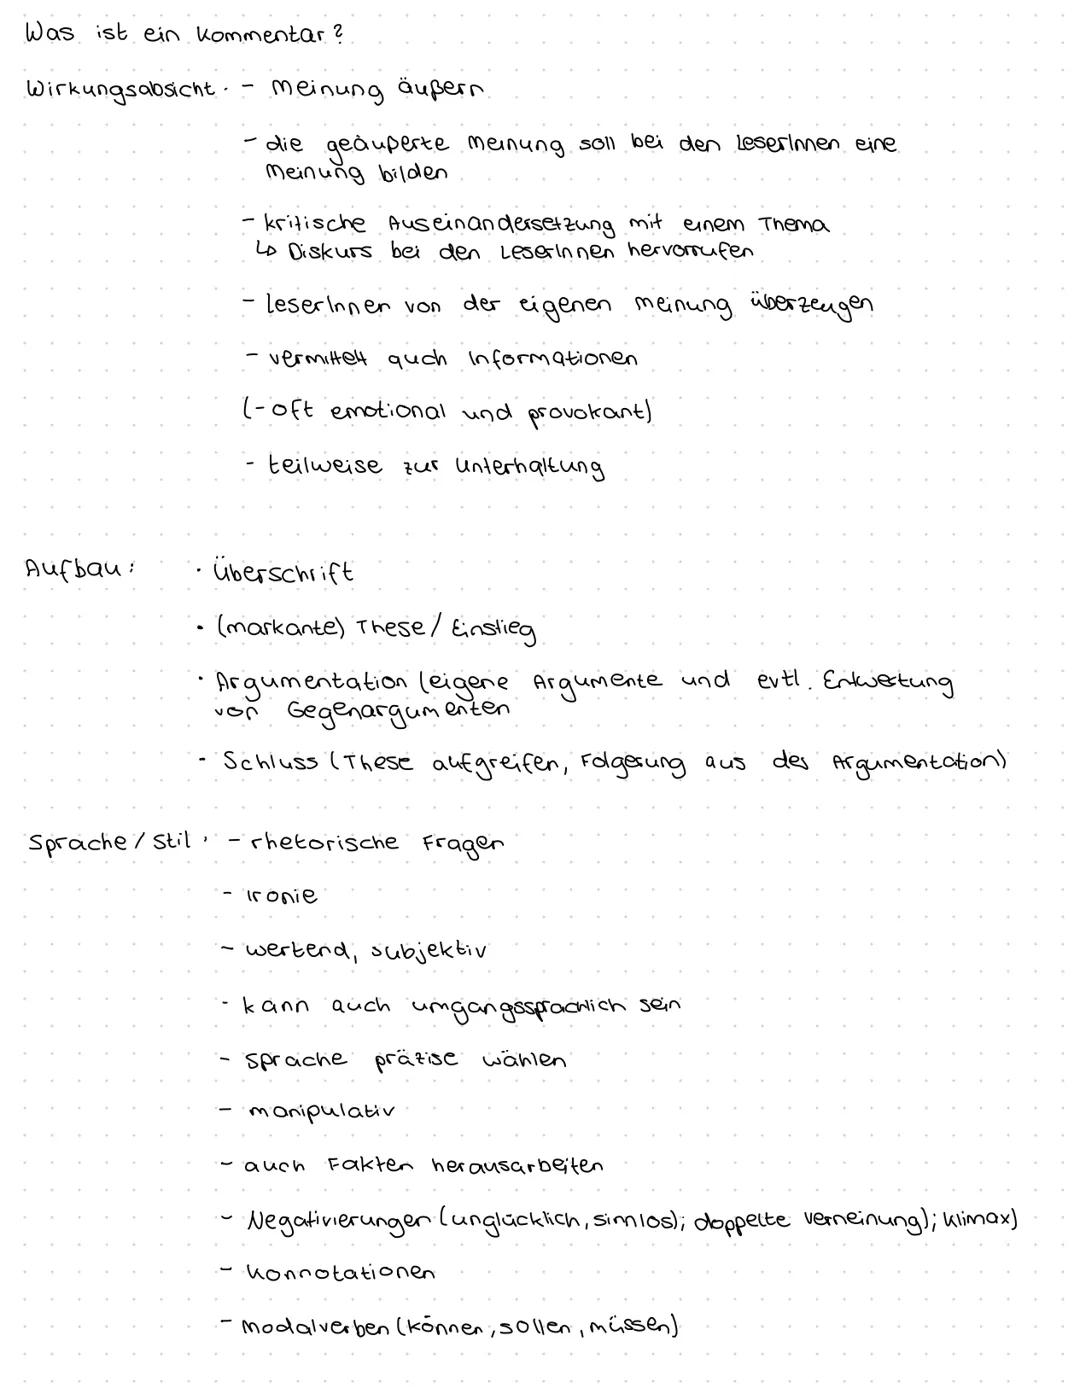 Was ist ein Kommentar?
Wirkungsabsicht: - Meinung äußern
- die geäußerte Meinung soll bei den LeserInnen eine
Meinung bilden
- kritische Auseinandersetzung mit einem Thema
↳ Diskurs bei den LeserInnen hervorrufen
- LeserInnen von der eigenen Meinung überzeugen
- vermittelt auch Informationen
(- oft emotional und provokant)
- teilweise zur Unterhaltung
Aufbau: · Überschrift
· (markante) These / Einstieg
· Argumentation (eigene Argumente und evtl. Entwertung
von Gegenargumenten
- Schluss (These aufgreifen, Folgerung aus der Argumentation)
Sprache / Stil: - rhetorische Fragen
- Ironie
- wertend, subjektiv
- kann auch umgangssprachlich sein
- Sprache präzise wählen
- manipulativ
- auch Fakten herausarbeiten
- Negativierungen (unglücklich, sinnlos); doppelte Verneinung); Klimax)
- Konnotationen
- Modalverben (können, sollen, müssen)